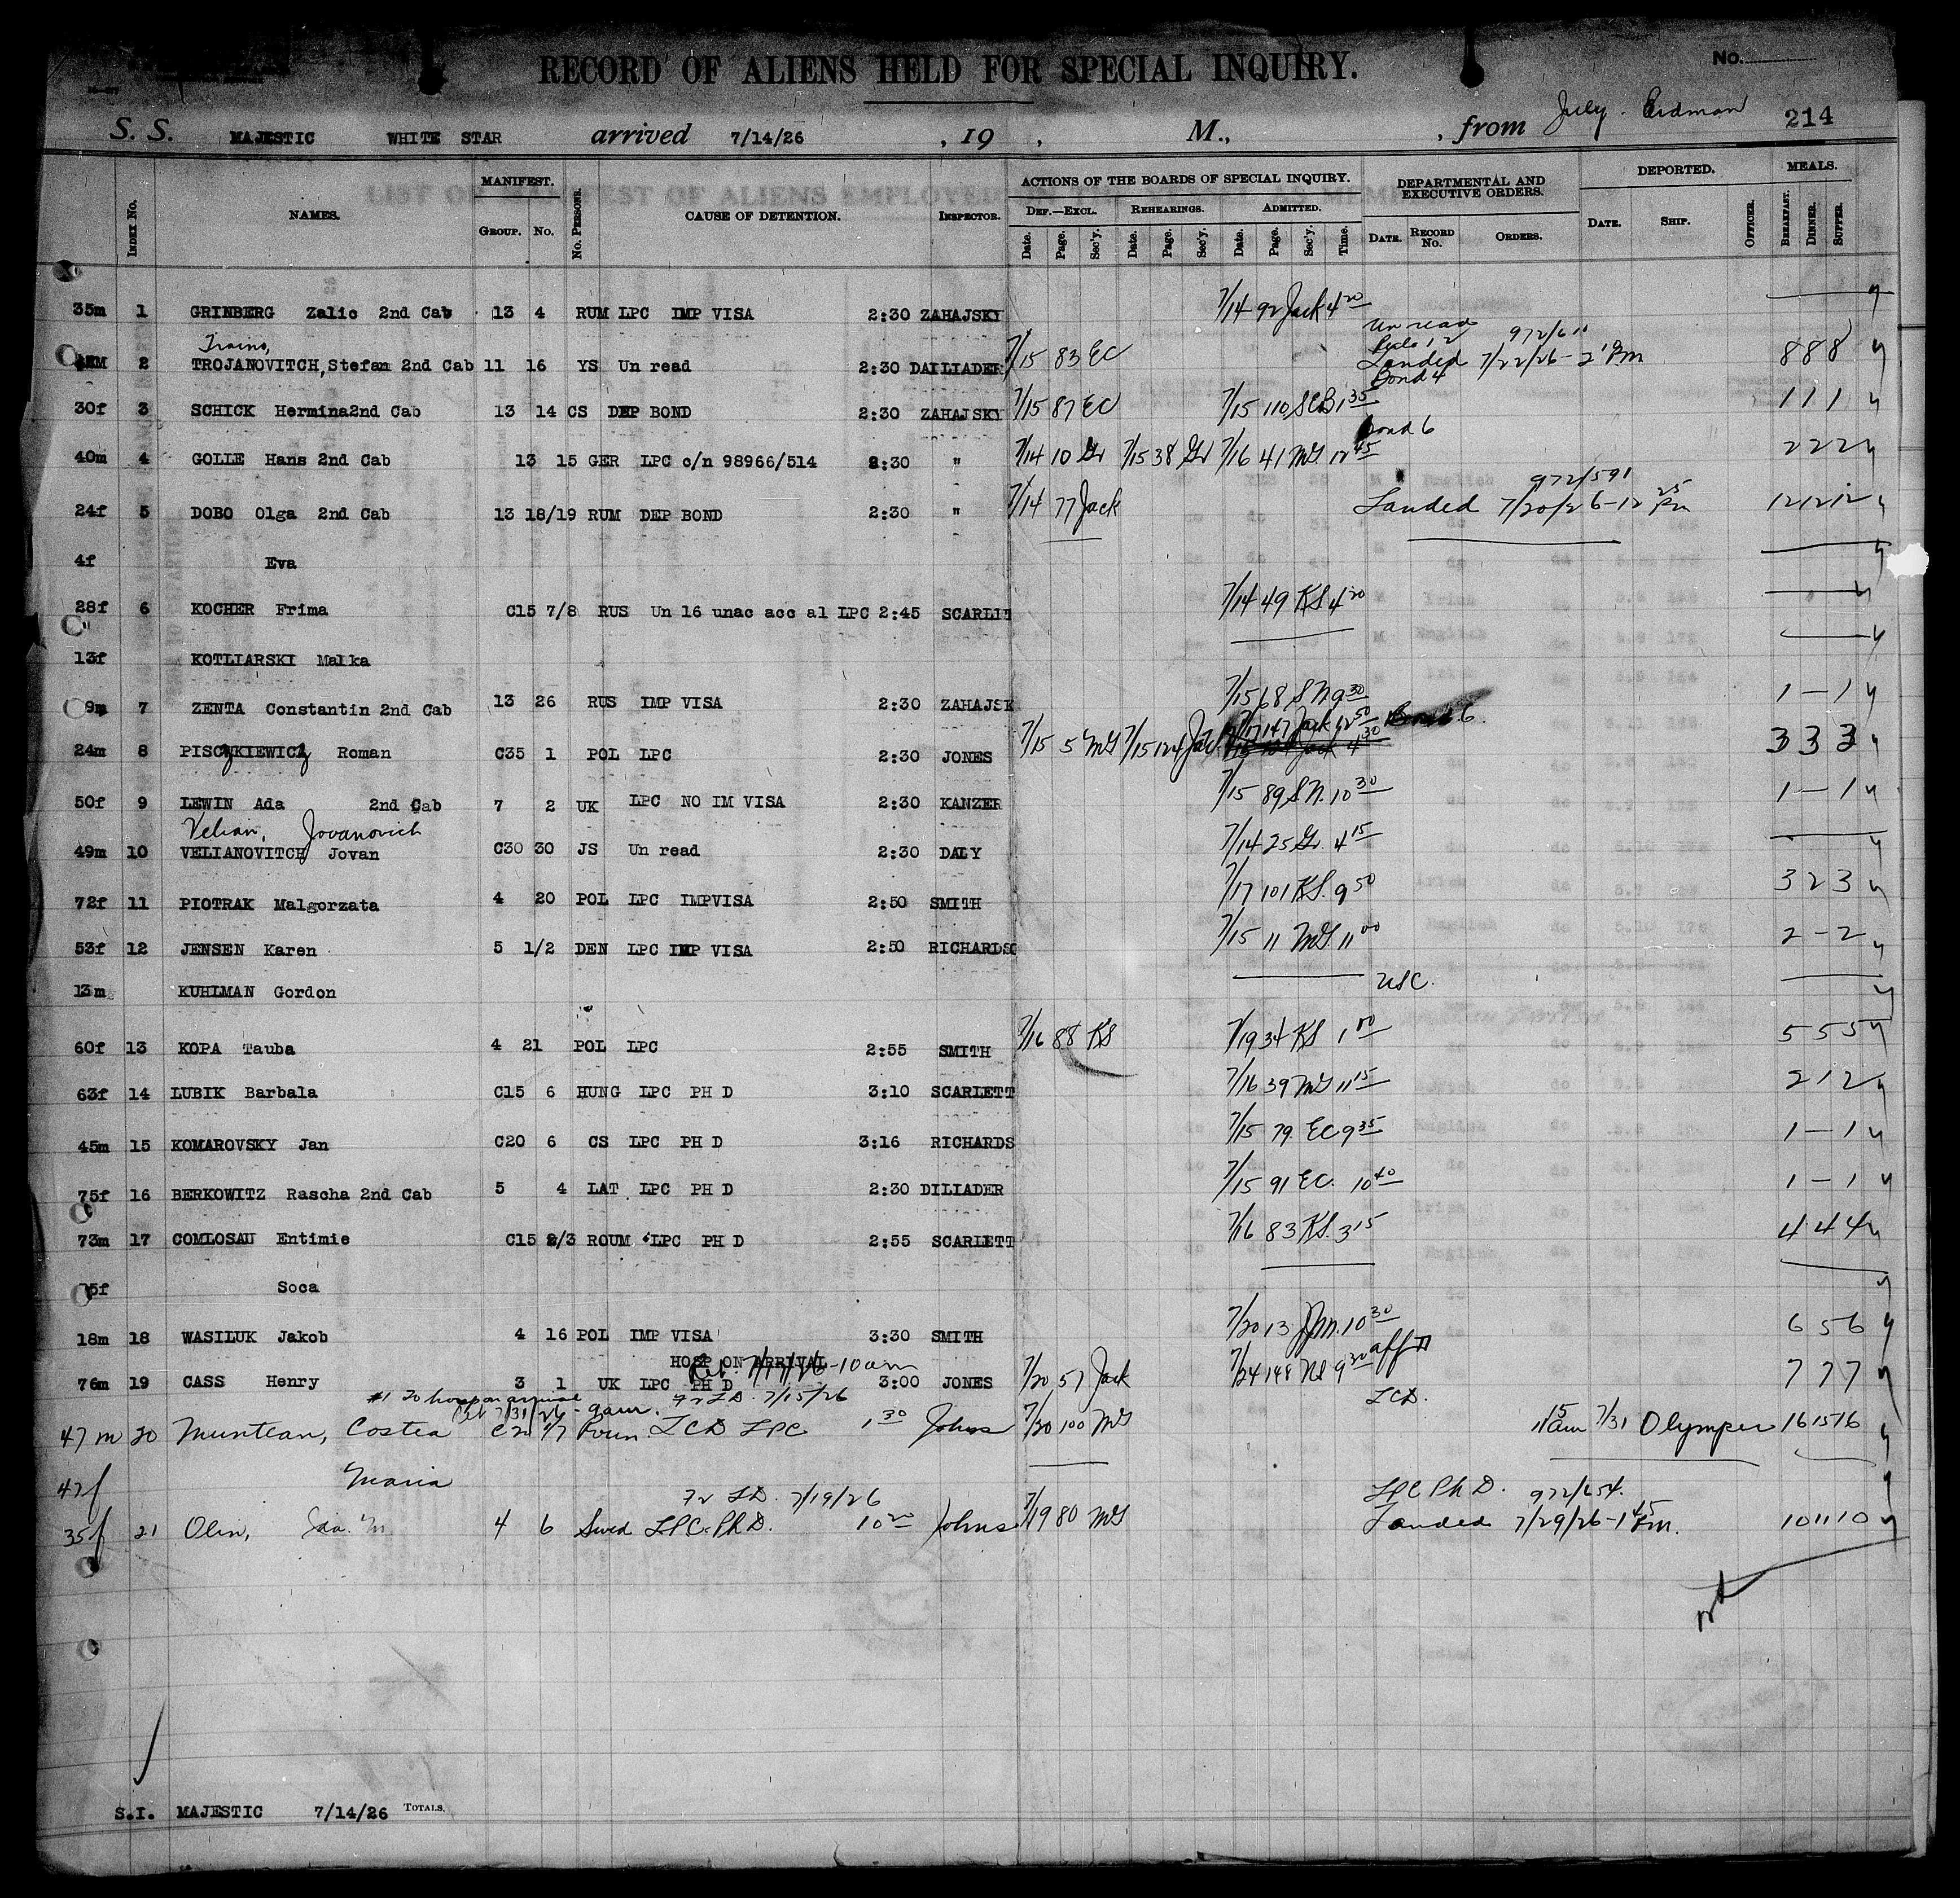 RECORD OF ALIENS HELD FOR SPECIAL INQUIRY.
No.
S. S. MAJESTIC WHITE STAR arrived 7/14/26 , 19 , M., , from July. Erdman 214
INDEX No. NAMES. MANIFEST. GROUP. No. No. PERSONS. CAUSE OF DETENTION. INSPECTOR. ACTIONS OF THE BOARDS OF SPECIAL INQUIRY. DEF.—EXCL. REHEARINGS. ADMITTED. DEPARTMENTAL AND EXECUTIVE ORDERS. DEPORTED. MEALS.
Date. Page. Sec'y. Date. Page. Sec'y. Date. Page. Sec'y. Time. DATE. RECORD No. ORDERS. DATE. SHIP. OFFICER. BREAKFAST. DINNER. SUPPER.
35m 1 GRINBERG Zalic 2nd Cab 13 4 RUM LPC IMP VISA 2:30 ZAHAJSKY 7/14 92 Jack 4 20
Un read 972/611
2 TROJANOVITCH, Stefan 2nd Cab 11 16 YS Un read 2:30 DAILIADER 7/15 83 EC Landed 7/22/26 - 2 Pm 8 8 8
Bond 4
30f 3 SCHICK Hermina 2nd Cab 13 14 CS DEP BOND 2:30 ZAHAJSKY 7/15 87 EC 7/15 110 SCB 1 35 1 1 1
Bond 6
40m 4 GOLLE Hans 2nd Cab 13 15 GER LPC c/n 98966/514 2:30 " 7/14 10 Gr 7/15 38 Gr 7/16 41 MG 12 45 2 2 2
972/591
24f 5 DOBO Olga 2nd Cab 13 18/19 RUM DEP BOND 2:30 " 7/14 77 Jack Landed 7/20/26 - 12 25 Pm 12 12 12
4f Eva
28f 6 KOCHER Frima C15 7/8 RUS Un 16 unac acc al LPC 2:45 SCARLET 7/14 49 KS 4 20
13f KOTLIARSKI Malka
9m 7 ZENTA Constantin 2nd Cab 13 26 RUS IMP VISA 2:30 ZAHAJSK 7/15 68 SN 9 30 1 - 1
7/17 147 Jack 12 50 Bond 6.
24m 8 PISCZKIEWICZ Roman C35 1 POL LPC 2:30 JONES 7/15 5 MG 7/15 124 Jack 3 3 3
50f 9 LEWIN Ada 2nd Cab 7 2 UK LPC NO IM VISA 2:30 KANZER 7/15 89 SN. 10 30 1 - 1
Velian, Jovanovich
49m 10 VELIANOVITCH Jovan C30 30 JS Un read 2:30 DALY 7/14 25 Gr. 4 15
72f 11 PIOTRAK Malgorzata 4 20 POL LPC IMPVISA 2:50 SMITH 7/17 101 KS. 9 50 3 2 3
53f 12 JENSEN Karen 5 1/2 DEN LPC IMP VISA 2:50 RICHARDSO 7/15 11 MG. 11 00 2 - 2
13m KUHLMAN Gordon USC.
60f 13 KOPA Tauba 4 21 POL LPC 2:55 SMITH 7/16 88 KS 7/19 34 KS 1 00 5 5 5
63f 14 LUBIK Barbala C15 6 HUNG LPC PH D 3:10 SCARLETT 7/16 39 MG 11 15 2 1 2
45m 15 KOMAROVSKY Jan C20 6 CS LPC PH D 3:16 RICHARDS 7/15 79 EC 9 35 1 - 1
75f 16 BERKOWITZ Rascha 2nd Cab 5 4 LAT LPC PH D 2:30 DILIADER 7/15 91 EC. 10 40 1 - 1
73m 17 COMLOSAU Entimie C15 2/3 ROUM LPC PH D 2:55 SCARLETT 7/16 83 KS. 3 15 4 4 4
75f Soca
18m 18 WASILUK Jakob 4 16 POL IMP VISA 3:30 SMITH 7/20 13 10 30 6 5 6
HOSP ON ARRIVAL
76m 19 CASS Henry 3 1 UK LPC PH D 3:00 JONES 7/20 57 Jack 7/24 148 9 30 7 7 7
#1 20 hosp on arrival 7/31/26 - 9 am. 7/15/26 LCD.
47m 20 Muntean, Costea Roum. LCD LPC 1 30 Johns 7/30 100 MG 11 15 am 7/31 Olympic 16 15 16
47f Maria
7/19/26 LPC Ph D. 972/654.
35f 21 Olin, 4 6 Swed LPC. Ph D. 10 20 Johns 7/19 80 MG Landed 7/29/26 - 1 45 Pm. 10 11 10
S.I. MAJESTIC 7/14/26 TOTALS.